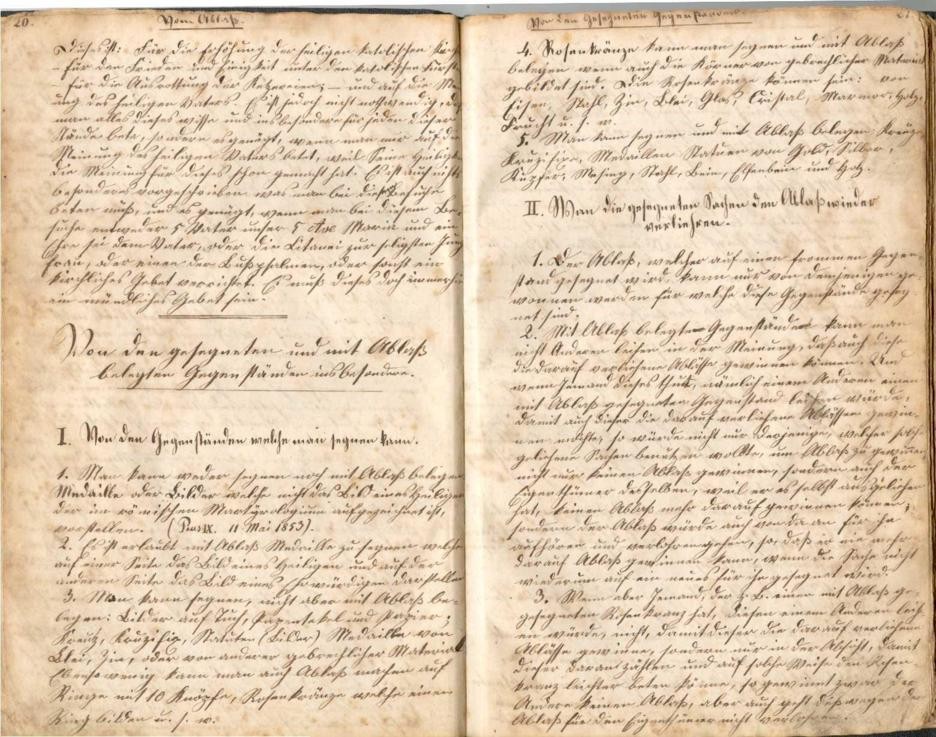 26.
Vom Ablaß.
dieses ist: Für die Erhöhung der heiligen katolischen
für den Frieden und Einigkeit unter den katolischen
für die Ausrottung der Kezereien; und auf die
des heiligen Vaters. Es ist jedoch nicht nothwendig,
man alles dieses wisse und insbesondere für jeden dieser
bete, sondern es genügt, wenn man nur auf die
Meinung des heiligen Vaters betet, weil Seine Heiligkeit
die Meinung für dieses schon gemacht hat. Es ist auch nichts
besonderes vorgeschrieben was man bei diesem Besuche
beten muß, und es genügt, wenn man bei diesem Be-
suche entweder 5 Vater unser 5 Ave Maria und ein
Ehre sei dem Vater, oder die Litanei zur seligsten Jung
frau, oder einen der Bußpsalmen, oder sonst ein
kirchliches Gebet verrichtet. Es muß dieses doch immerhin
ein mündliches Gebet sein.
Von den gesegneten und mit Ablaß
belegten Gegenständen insbesondere.
I. Von den Gegenständen welche man segnen kann.
1. Man kann weder segnen noch mit Ablaß belegen
Medaille oder Bilder welche nicht das Bild eines Heiligen
der im römischen Martyrologium aufgezeichnet ist,
vorstellen. (Pius IX. 11 Mai 1853).
2. Es ist erlaubt mit Ablaß Medaille zu segnen welche
auf einer Seite das Bild eines Heiligen und auf der
anderen Seite das Bild eines Ehrwürdigen darstellen
3. Man kann segnen, nicht aber mit Ablaß be-
legen: Bilder auf Tuch, und Papier;
Kreuz, Kruzifix, Statuten (Bilder) Medaille von
Blei, Zin, oder von anderer gebrechlicher Material
Ebensowenig kann man auch Ablaß machen auf
Ringe mit 10 Knöpfe, Rosenkränze welche einen
Ring bilden u. s. w.
Von den Gesegneten Gegenständen
4. Rosenkränze kann man segnen und mit Ablaß
belegen wenn auch die Körner von gebrechlicher Material
gebildet sind. Die Rosenkränze können sein: von
Eisen, Stahl, Zin, Blei, Glas, Cristal, Marmor, Holz,
Frucht u. s. w.
5. Man kann segnen und mit Ablaß belegen Kreuze,
Kruzifixe, Medaillen Statuen von Gold, Silber,
Kupfer, Mesing, Stahl, Bein, Elfenbein und Holz.
II. Wan die gesegneten Sachen den Ablaß wieder
verliehren.
1. Der Ablaß, welcher auf einen frommen Gegen-
stand gesegnet wird, kann nur von demjenigen ge-
wonnen werden für welche diese Gegenstände geseg-
net sind.
2. Mit Ablaß belegte Gegenstände kann man
nicht Anderen leihen in der Meinung, daß auch diese
die darauf verliehene Ablässe gewinnen können. Und
wenn Jemand dieses thut, nämlich einem Anderen einen
mit Ablaß gesegneten Gegenstand leihen würde,
damit auch dieser die darauf verliehene Ablässe gewin-
nen möchte, so würde nicht nur derjenige, welcher solch
geliehene Sachen benutzen wollte, um Ablaß zu gewinnen
nicht nur keinen Ablaß gewinnen, sondern auch der
Eigenthümer desselben, weil er es selbst ausgeliehen
hat, keinen Ablaß mehr darauf gewinnen können;
sondern der Ablaß würde auch von da an für ihn
aufhören und verlohren gehen, so, daß er nie mehr
darauf Ablaß gewinnen kann, wenn die Sache nicht
wiederum auf ein neues für ihn gesegnet wird.
3. Wenn aber Jemand, der z. B. einen mit Ablaß ge-
segneten Rosenkranz hat, diesen einem Anderen leih
en würde, nicht, damit dieser die darauf verliehene
Ablässe gewinne, sondern nur in der Absicht, damit
dieser daran zählen und auf solche Weise den Rosen-
kranz leichter beten könne, so gewinnt zwar der
Andere keinen Ablaß, aber auch geht deßwegen der
Ablaß für den Eigenthümer nicht verlohren.